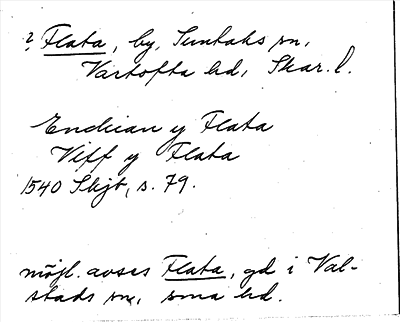 ? Flata, by, Suntaks sn,
Vartofta hd, Skar. l.
Endrian y Flata
Viff y Flata
1540 Skjb, s. 79.
möjl. avses Flata, gd i Val-
stads sn, sma hd.